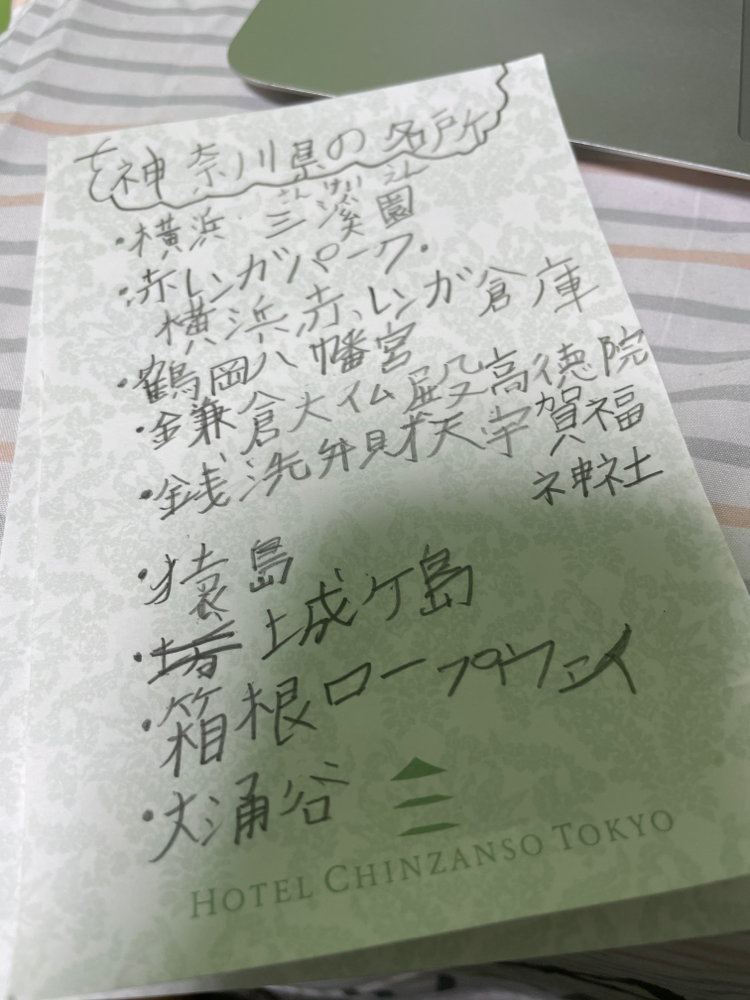 神奈川県の名所
さん けい えん
・横浜 三溪園
・赤レンガパーク・
横浜赤レンガ倉庫
・鶴岡八幡宮
・鎌倉大仏殿高徳院
・銭洗弁財天宇賀福
神社
・猿島
・城ケ島
・箱根ロープウェイ
・大涌谷
HOTEL CHINZANSO TOKYO